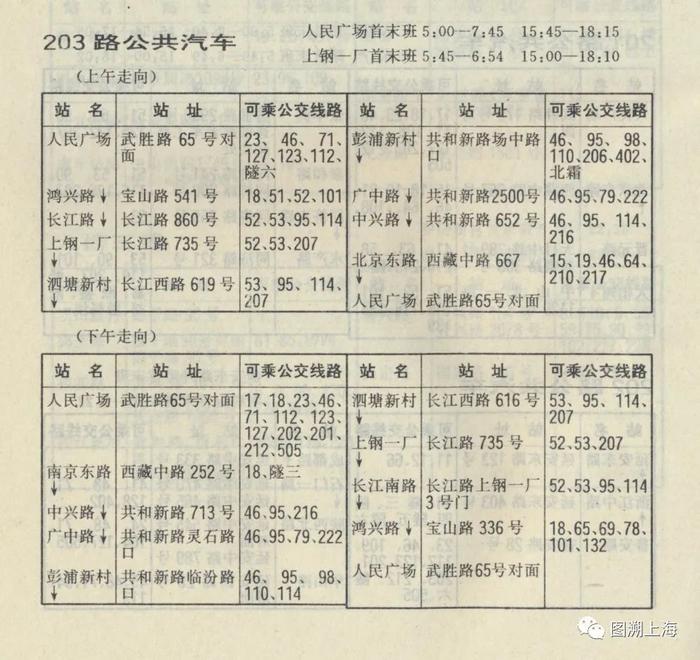 203 路公共汽车
人民广场首末班 5:00—7:45 15:45—18:15
上钢一厂首末班 5:45—6:54 15:00—18:10
(上午走向)
站 名 站 址 可乘公交线路
人民广场 武胜路 65 号对面 23、46、71、127、123、112、隧六
鸿兴路↓ 宝山路 541 号 18、51、52、101
长江路↓ 长江路 860 号 52、53、95、114
上钢一厂↓ 长江路 735 号 52、53、207
泗塘新村↓ 长江西路 619 号 53、95、114、207
站 名 站 址 可乘公交线路
彭浦新村↓ 共和新路场中路口 46、95、98、110、206、402、北霜
广中路↓ 共和新路2500号 46、95、79、222
中兴路↓ 共和新路 652 号 46、95、114、216
北京东路↓ 西藏中路 667 15、19、46、64、210、217
人民广场 武胜路65号对面
(下午走向)
站 名 站 址 可乘公交线路
人民广场 武胜路65号对面 17、18、23、46、71、112、123、127、202、201、212、505
南京东路↓ 西藏中路 252 号 18、隧三
中兴路↓ 共和新路 713 号 46、95、216
广中路↓ 共和新路灵石路口 46、95、79、222
彭浦新村↓ 共和新路临汾路口 46、95、98、110、114
站 名 站 址 可乘公交线路
泗塘新村↓ 长江西路 616 号 53、95、114、207
上钢一厂↓ 长江路 735 号 52、53、207
长江南路↓ 长江路上钢一厂3 号门 52、53、95、114
鸿兴路↓ 宝山路 336 号 18、65、69、78、101、132
人民广场 武胜路65号对面
图溯上海